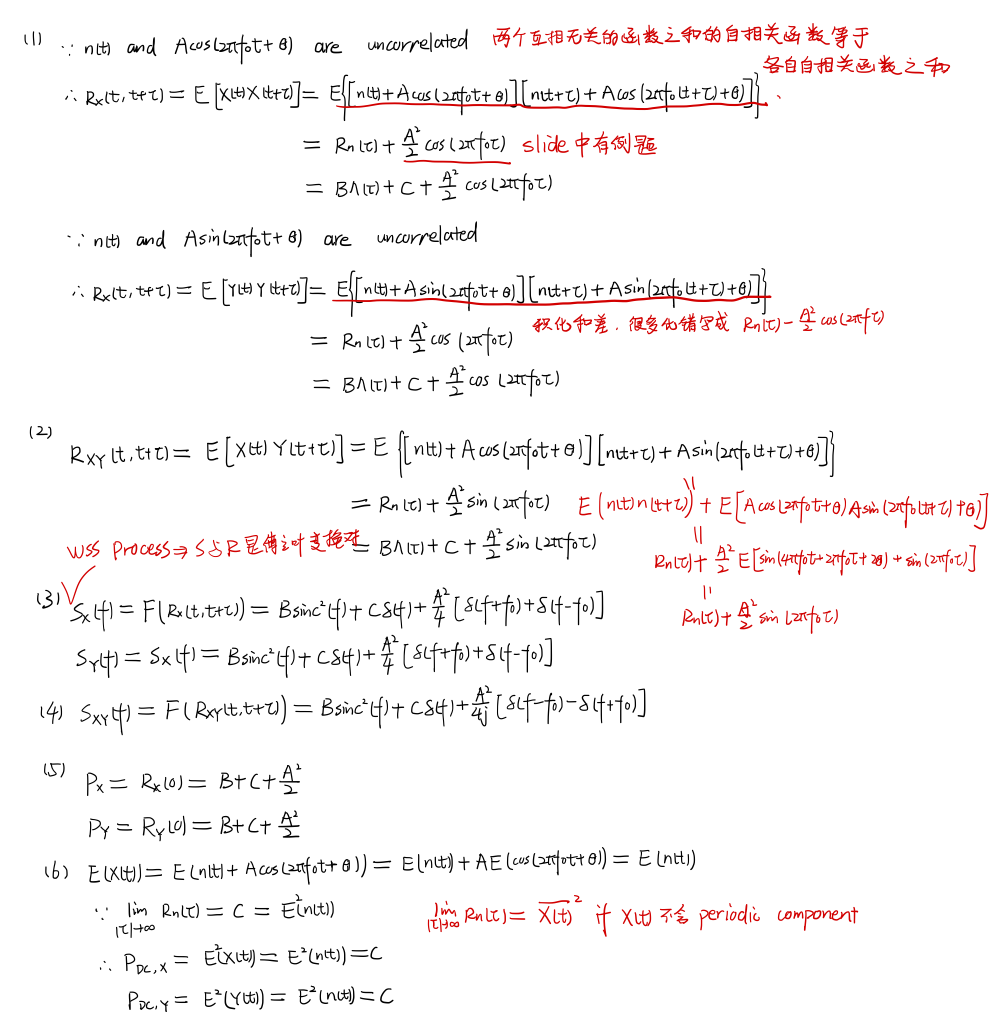 (1) ∵ n(t) and Acos(2πf₀t+θ) are uncorrelated 两个互相无关的函数之和的自相关函数等于
各自自相关函数之和.
∴ Rx(t, t+τ) = E[X(t)X(t+τ)] = E{[n(t)+Acos(2πf₀t+θ)][n(t+τ)+Acos(2πf₀(t+τ)+θ)]}
= Rn(τ) + A²/2 cos(2πf₀τ) slide中有例题
= BΛ(τ) + C + A²/2 cos(2πf₀τ)
∵ n(t) and Asin(2πf₀t+θ) are uncorrelated
∴ Rx(t, t+τ) = E[Y(t)Y(t+τ)] = E{[n(t)+Asin(2πf₀t+θ)][n(t+τ)+Asin(2πf₀(t+τ)+θ)]}
积化和差. 很多 错写成 Rn(τ) - A²/2 cos(2πfτ)
= Rn(τ) + A²/2 cos(2πf₀τ)
= BΛ(τ) + C + A²/2 cos(2πf₀τ)
(2) R_XY(t, t+τ) = E[X(t)Y(t+τ)] = E{[n(t)+Acos(2πf₀t+θ)][n(t+τ)+Asin(2πf₀(t+τ)+θ)]}
= Rn(τ) + A²/2 sin(2πf₀τ) E(n(t)n(t+τ)) + E[Acos(2πf₀t+θ)Asin(2πf₀(t+τ)+θ)]
WSS Process ⇒ S与R是傅立叶变换对 = BΛ(τ) + C + A²/2 sin(2πf₀τ)
Rn(τ) + A²/2 E[sin(4πf₀t+2πf₀τ+2θ) + sin(2πf₀τ)]
(3) Sx(f) = F(Rx(t,t+τ)) = Bsinc²(f) + Cδ(f) + A²/4 [δ(f+f₀)+δ(f-f₀)]
Rn(τ) + A²/2 sin(2πf₀τ)
S_Y(f) = Sx(f) = Bsinc²(f) + Cδ(f) + A²/4 [δ(f+f₀)+δ(f-f₀)]
(4) S_XY(f) = F(R_XY(t,t+τ)) = Bsinc²(f) + Cδ(f) + A²/4j [δ(f-f₀)-δ(f+f₀)]
(5) Px = Rx(0) = B+C+A²/2
P_Y = R_Y(0) = B+C+A²/2
(6) E(X(t)) = E(n(t)+Acos(2πf₀t+θ)) = E(n(t)) + AE(cos(2πf₀t+θ)) = E(n(t))
∵ lim |τ|→∞ Rn(τ) = C = E²(n(t)) lim |τ|→∞ Rn(τ) = X̅(̅t̅)̅² if X(t) 不含 periodic component
∴ P_DC,X = E²(X(t)) = E²(n(t)) = C
P_DC,Y = E²(Y(t)) = E²(n(t)) = C